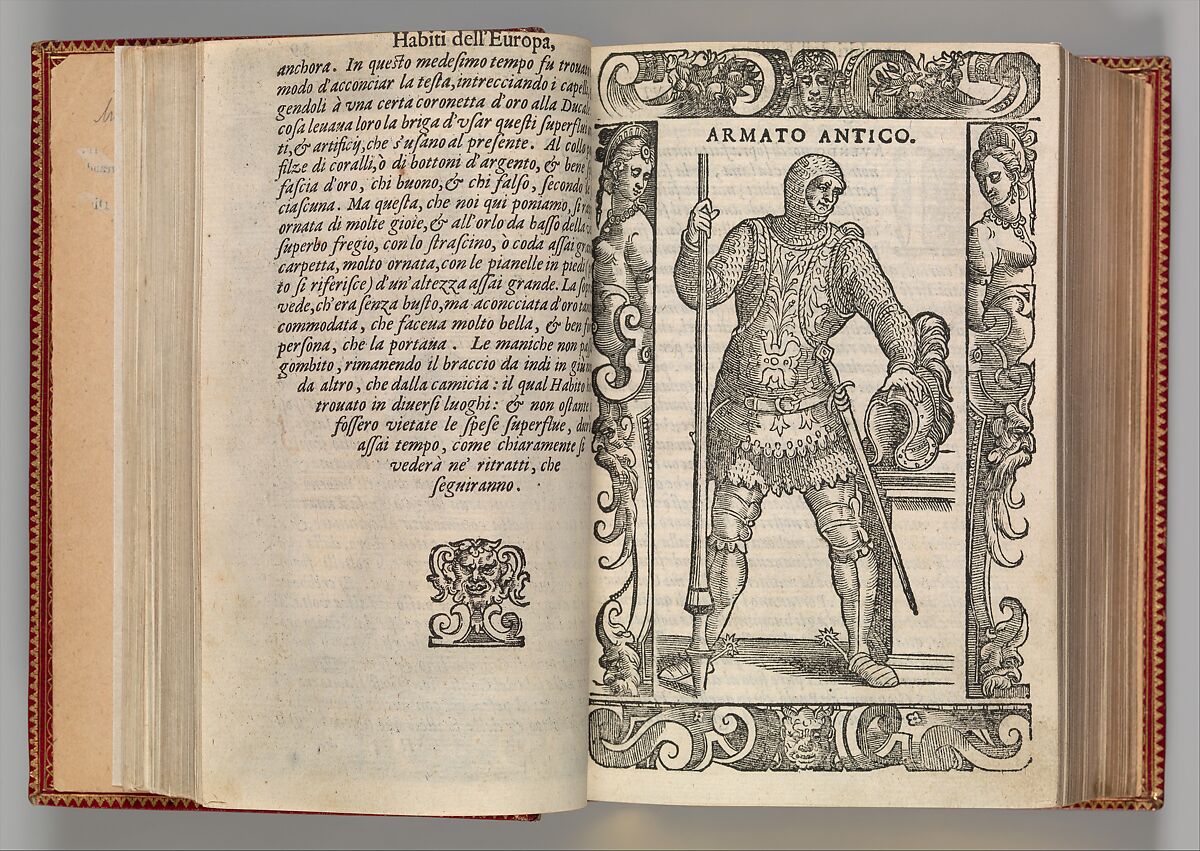 Habiti dell'Europa,
anchora. In questo medesimo tempo fu trouat
modo d'acconciar la testa, intrecciando i capell
gendoli à vna certa coronetta d'oro alla Ducal
cosa leuaua loro la briga d'vsar questi superflu
ti, & artificij, che s'usano al presente. Al collo
filze di coralli, ò di bottoni d'argento, & bene
fascia d'oro, chi buono, & chi falso, secondo
ciascuna. Ma questa, che noi qui poniamo, si
ornata di molte gioie, & all'orlo da basso della
superbo fregio, con lo strascino, ò coda assai gr
carpetta, molto ornata, con le pianelle in piedi
to si riferisce) d'un'altezza assai grande. La
vede, ch'era senza busto, ma aconcciata d'oro
commodata, che faceua molto bella, & ben
persona, che la portaua. Le maniche non pa
gombito, rimanendo il braccio da indi in giù
da altro, che dalla camicia: il qual Habito
trouato in diuersi luoghi: & non ostante
fossero vietate le spese superflue, dur
assai tempo, come chiaramente si
vederà ne' ritratti, che
seguiranno.
ARMATO ANTICO.